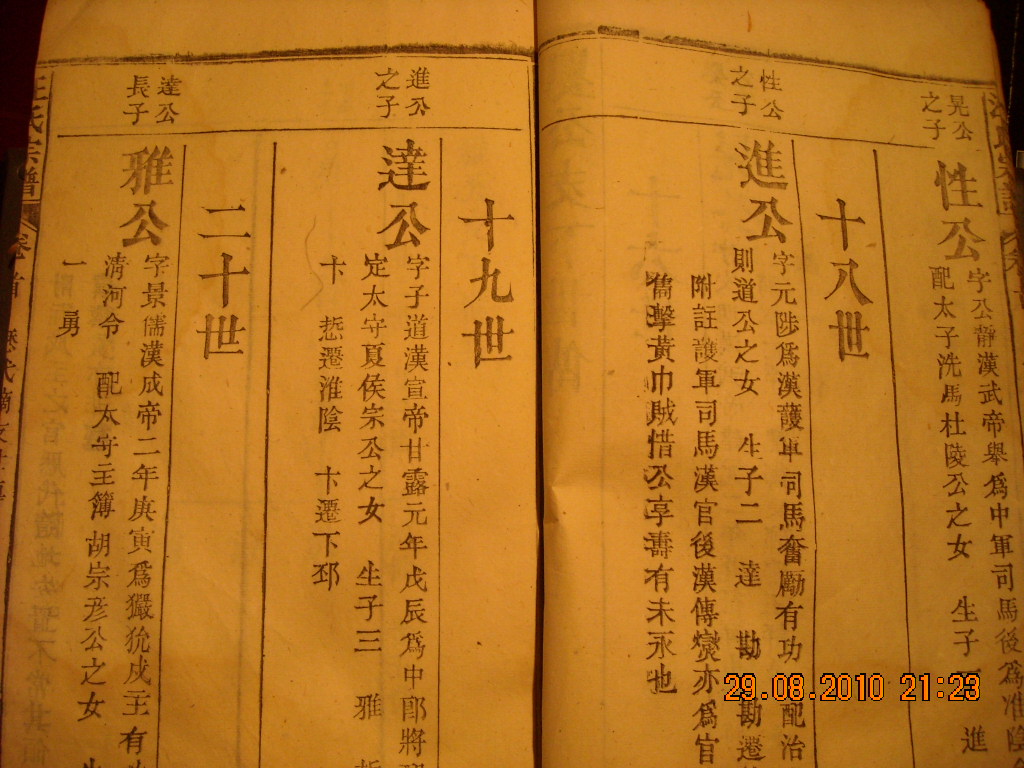 晃公
之子
性公
字公靜漢武帝舉爲中軍司馬後爲淮陰
配太子洗馬杜陵公之女 生子一 進
十八世
性公
之子
進公
字元陟爲漢護軍司馬奮勵有功 配治
則道公之女 生子二 達 勘 勘遷
附註護軍司馬漢官後漢傅燮亦爲官
儁擊黃巾賊惜公享壽有未永也
十九世
進公
之子
達公
字子道漢宣帝甘露元年戊辰爲中郎將
定太守夏侯宗公之女 生子三 雅
卞 悊遷淮陰 卞遷下邳
二十世
達公
長子
雅公
字景儒漢成帝二年庚寅爲玁狁戍主有
清河令 配太守主簿胡宗彥公之女 生
一 勇
汪氏宗譜 卷首
29.08.2010 21:23